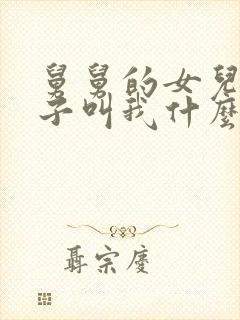 舅舅的女兒
子叫我什麼
聶宗慶